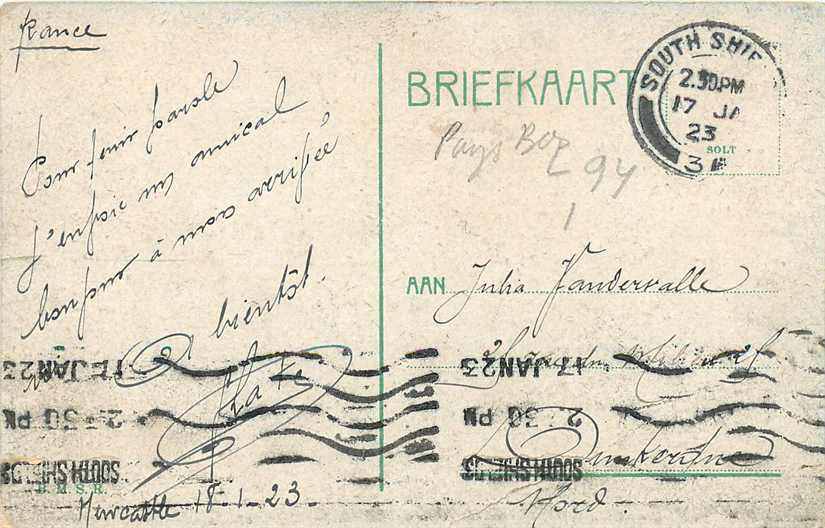 France
Pour tenir parole
j'envoie un amical
bonjour à mon arrivée
A bientôt.
Newcastle 18-1-23
B.M.S.R.
BRIEFKAART
SOUTH SHIE
2.30PM
17 JA
23
SOLT
Pays Bas
94
1
AAN Julia Vandewalle
Dunkerque
Nord.
17 JAN 23
2·30 PM
SOUTH SHIELDS
17 JAN 23
2·30 PM
SOUTH SHIELDS